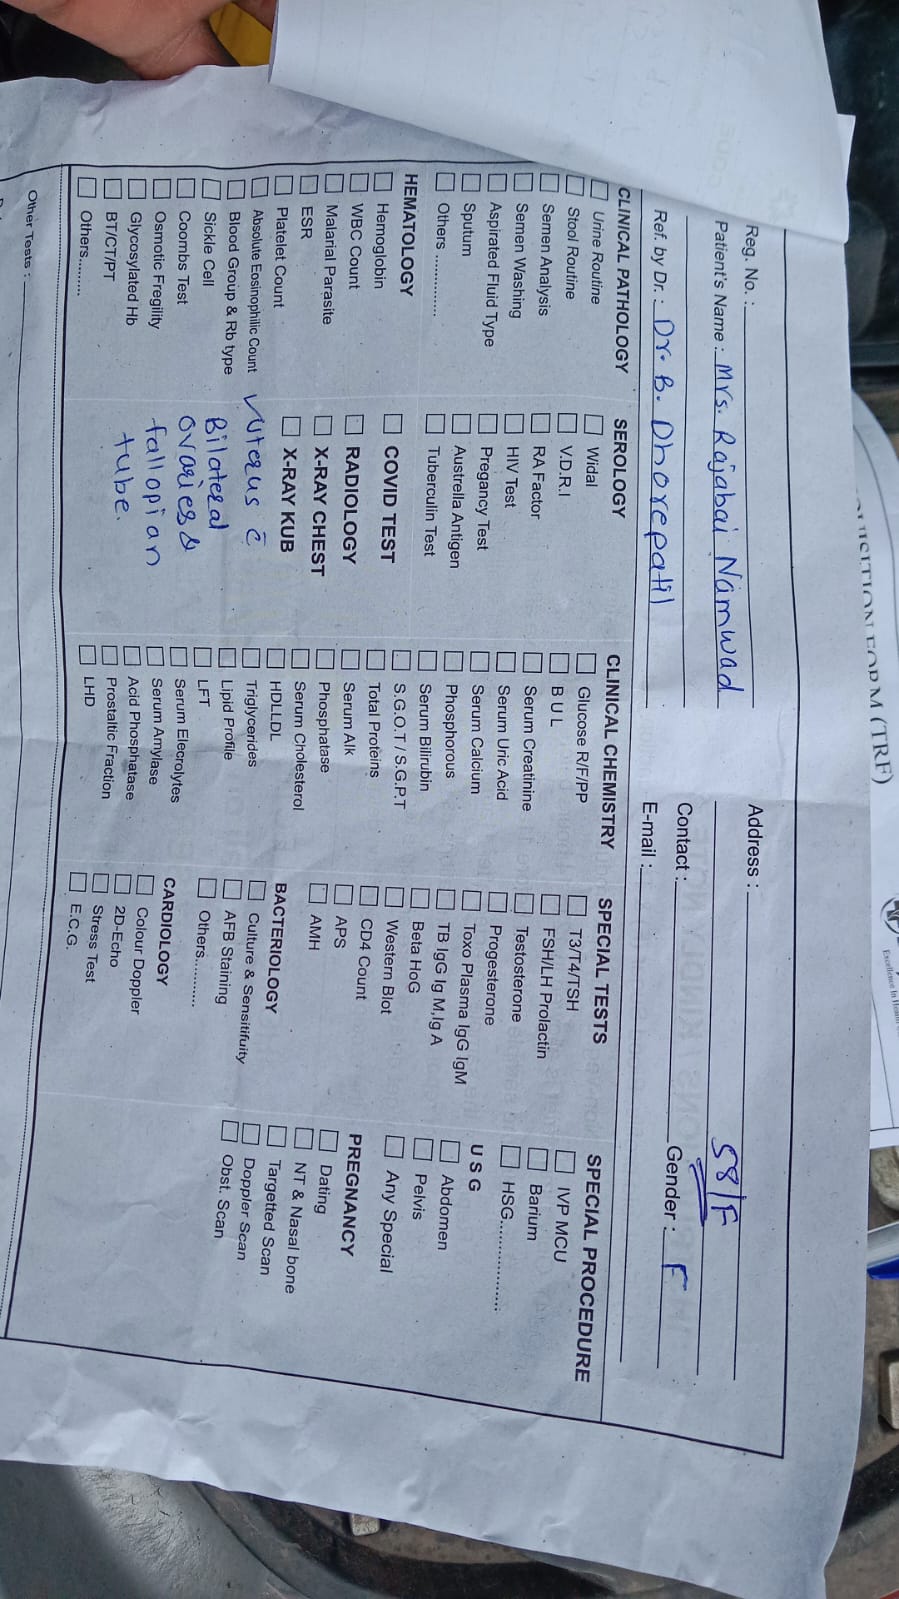 UISITION FORM (TRF)
Reg. No. :
Patient's Name : Mrs. Rajabai Namwad
Ref. by Dr. : Dr. B. Dhorepatil
Address :
58/F
Contact :
Gender : F
E-mail :
CLINICAL PATHOLOGY
Urine Routine
Stool Routine
Semen Analysis
Semen Washing
Aspirated Fluid Type
Sputum
Others ............
HEMATOLOGY
Hemoglobin
WBC Count
Malarial Parasite
ESR
Platelet Count
Absolute Eosinophilic Count
Blood Group & Rb type
Sickle Cell
Coombs Test
Osmotic Fregility
Glycosylated Hb
BT/CT/PT
Others.........
SEROLOGY
Widal
V.D.R.I
RA Factor
HIV Test
Pregancy Test
Australia Antigen
Tuberculin Test
COVID TEST
RADIOLOGY
X-RAY CHEST
X-RAY KUB
✓ Uterus c̄
Bilateral
ovaries &
fallopian
tube.
CLINICAL CHEMISTRY
Glucose R/F/PP
B U L
Serum Creatinine
Serum Uric Acid
Serum Calcium
Phosphorous
Serum Bilirubin
S.G.O.T / S.G.P.T
Total Proteins
Serum Alk
Phosphatase
Serum Cholesterol
HDLLDL
Triglycerides
Lipid Profile
LFT
Serum Elecrolytes
Serum Amylase
Acid Phosphatase
Prostaltic Fraction
LHD
SPECIAL TESTS
T3/T4/TSH
FSH/LH Prolactin
Testosterone
Progesterone
Toxo Plasma IgG IgM
TB IgG Ig M,Ig A
Beta HoG
Western Blot
CD4 Count
APS
AMH
BACTERIOLOGY
Culture & Sensitifuity
AFB Staining
Others...........
CARDIOLOGY
Colour Doppler
2D-Echo
Stress Test
E.C.G.
SPECIAL PROCEDURE
IVP MCU
Barium
HSG..................
U S G
Abdomen
Pelvis
Any Special
PREGNANCY
Dating
NT & Nasal bone
Targetted Scan
Doppler Scan
Obst. Scan
Other Tests :